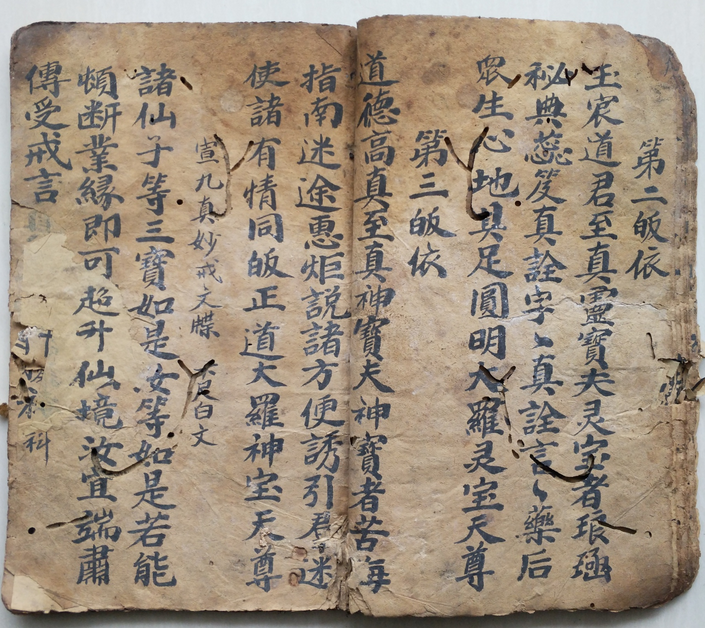 第二皈依
玉宸道君至真靈寶夫灵宝者琅函
秘典蕊笈真詮字〻真詮言〻藥后
眾生心地具足圓明大羅灵宝天尊
第三皈依
道德高真至真神寶夫神寶者苦海
指南迷途惠炬説諸方便誘引君迷
使諸有情同皈正道大羅神宝天尊
宣九真妙戒文牒 白文
諸仙子等三寶如是汝等如是若能
頓断業緣即可超升仙境汝宜端肅
傳受戒言 科